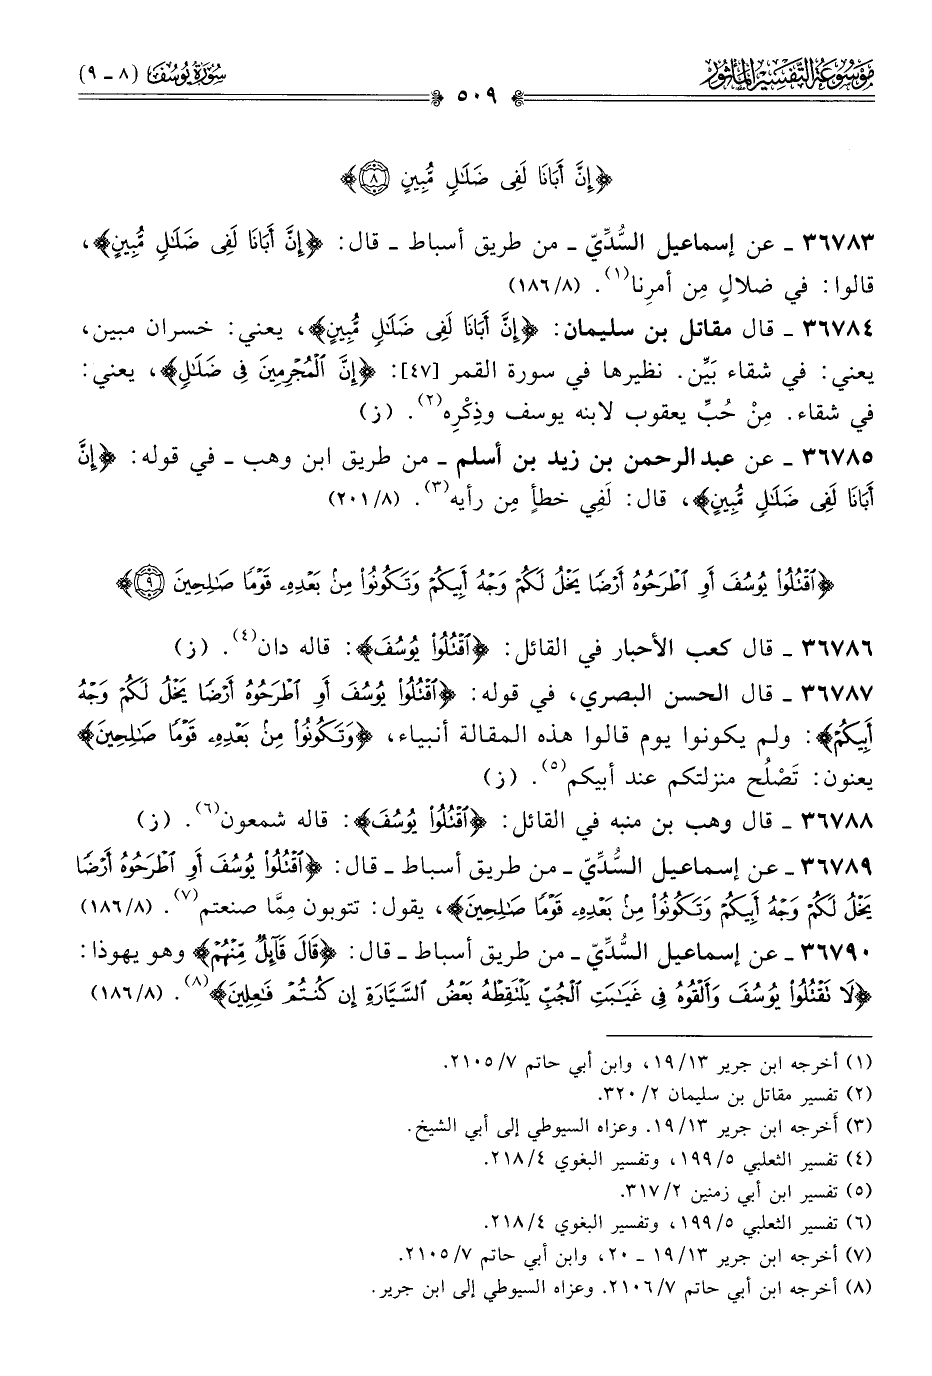 مَوْسُوعَةُ التَّفْسِيرِ المَأْثُور
سُورَةُ يُوسُفَ (٨ - ٩)
٥٠٩
﴿إِنَّ أَبَانَا لَفِى ضَلَٰلٍ مُّبِينٍ ٨﴾
٣٦٧٨٣ - عن إسماعيل السُّدِّيّ - من طريق أسباط - قال: ﴿إِنَّ أَبَانَا لَفِى ضَلَٰلٍ مُّبِينٍ﴾،
قالوا: في ضلالٍ مِن أمرِنا(١). (١٨٦/٨)
٣٦٧٨٤ - قال مقاتل بن سليمان: ﴿إِنَّ أَبَانَا لَفِى ضَلَٰلٍ مُّبِينٍ﴾، يعني: خسران مبين،
يعني: في شقاء بَيِّن. نظيرها في سورة القمر [٤٧]: ﴿إِنَّ ٱلْمُجْرِمِينَ فِى ضَلَٰلٍ﴾، يعني:
في شقاء. مِنْ حُبِّ يعقوب لابنه يوسف وذِكْرِه(٢). (ز)
٣٦٧٨٥ - عن عبدالرحمن بن زيد بن أسلم - من طريق ابن وهب - في قوله: ﴿إِنَّ
أَبَانَا لَفِى ضَلَٰلٍ مُّبِينٍ﴾، قال: لَفِي خطأٍ مِن رأيه(٣). (٢٠١/٨)
﴿ٱقْتُلُوا۟ يُوسُفَ أَوِ ٱطْرَحُوهُ أَرْضًا يَخْلُ لَكُمْ وَجْهُ أَبِيكُمْ وَتَكُونُوا۟ مِنۢ بَعْدِهِۦ قَوْمًا صَٰلِحِينَ ٩﴾
٣٦٧٨٦ - قال كعب الأحبار في القائل: ﴿ٱقْتُلُوا۟ يُوسُفَ﴾: قاله دان(٤). (ز)
٣٦٧٨٧ - قال الحسن البصري، في قوله: ﴿ٱقْتُلُوا۟ يُوسُفَ أَوِ ٱطْرَحُوهُ أَرْضًا يَخْلُ لَكُمْ وَجْهُ
أَبِيكُمْ﴾: ولم يكونوا يوم قالوا هذه المقالة أنبياء، ﴿وَتَكُونُوا۟ مِنۢ بَعْدِهِۦ قَوْمًا صَٰلِحِينَ﴾
يعنون: تَصْلُح منزلتكم عند أبيكم(٥). (ز)
٣٦٧٨٨ - قال وهب بن منبه في القائل: ﴿ٱقْتُلُوا۟ يُوسُفَ﴾: قاله شمعون(٦). (ز)
٣٦٧٨٩ - عن إسماعيل السُّدِّيّ - من طريق أسباط - قال: ﴿ٱقْتُلُوا۟ يُوسُفَ أَوِ ٱطْرَحُوهُ أَرْضًا
يَخْلُ لَكُمْ وَجْهُ أَبِيكُمْ وَتَكُونُوا۟ مِنۢ بَعْدِهِۦ قَوْمًا صَٰلِحِينَ﴾، يقول: تتوبون مِمَّا صنعتم(٧). (١٨٦/٨)
٣٦٧٩٠ - عن إسماعيل السُّدِّيّ - من طريق أسباط - قال: ﴿قَالَ قَآئِلٌ مِّنْهُمْ﴾ وهو يهوذا:
﴿لَا تَقْتُلُوا۟ يُوسُفَ وَأَلْقُوهُ فِى غَيَٰبَتِ ٱلْجُبِّ يَلْتَقِطْهُ بَعْضُ ٱلسَّيَّارَةِ إِن كُنتُمْ فَٰعِلِينَ﴾(٨). (١٨٦/٨)
(١) أخرجه ابن جرير ١٩/١٣، وابن أبي حاتم ٢١٠٥/٧.
(٢) تفسير مقاتل بن سليمان ٣٢٠/٢.
(٣) أخرجه ابن جرير ١٩/١٣. وعزاه السيوطي إلى أبي الشيخ.
(٤) تفسير الثعلبي ١٩٩/٥، وتفسير البغوي ٢١٨/٤.
(٥) تفسير ابن أبي زمنين ٣١٧/٢.
(٦) تفسير الثعلبي ١٩٩/٥، وتفسير البغوي ٢١٨/٤.
(٧) أخرجه ابن جرير ١٩/١٣ - ٢٠، وابن أبي حاتم ٢١٠٥/٧.
(٨) أخرجه ابن أبي حاتم ٢١٠٦/٧. وعزاه السيوطي إلى ابن جرير.